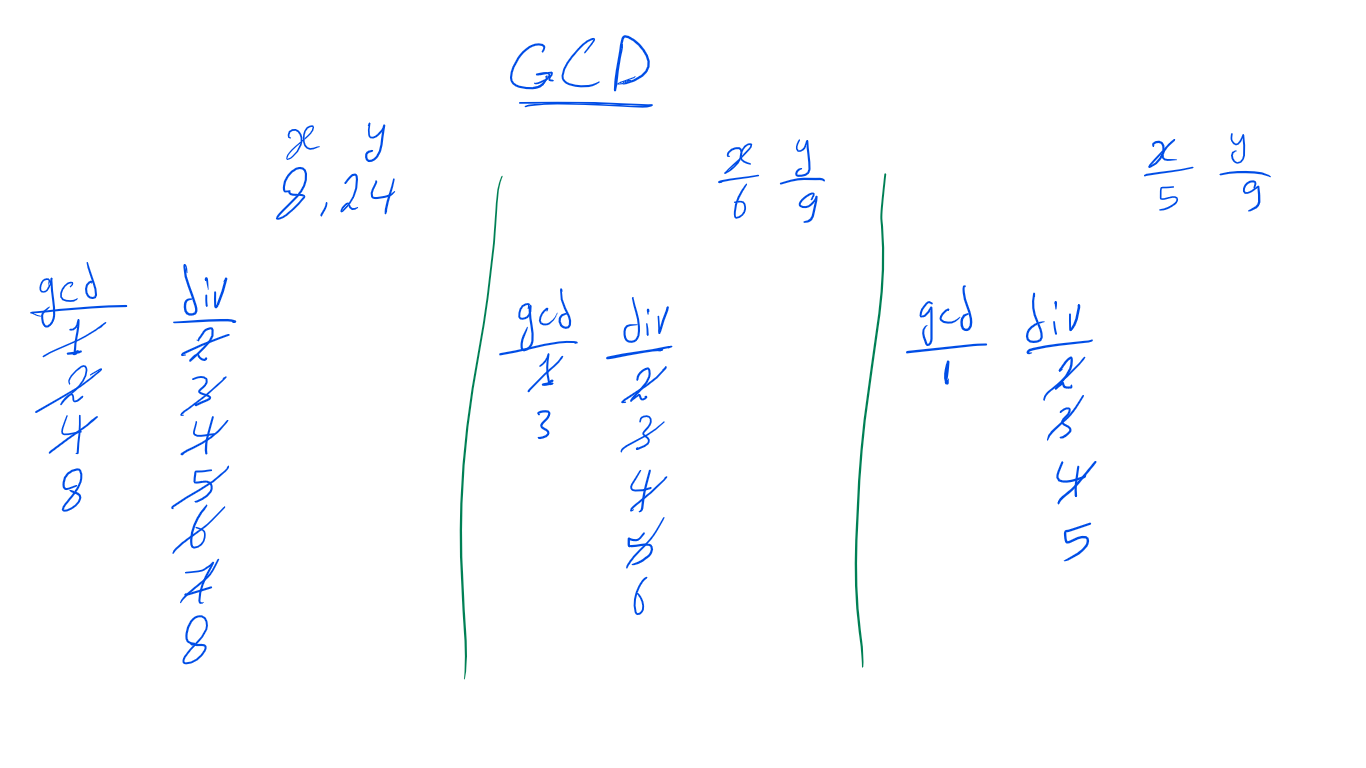 GCD
x y
8, 24
gcd div
1 2
2 3
4 4
8 5
6
7
8
x y
6 9
gcd div
1 2
3 3
4
5
6
x y
5 9
gcd div
1 2
3
4
5